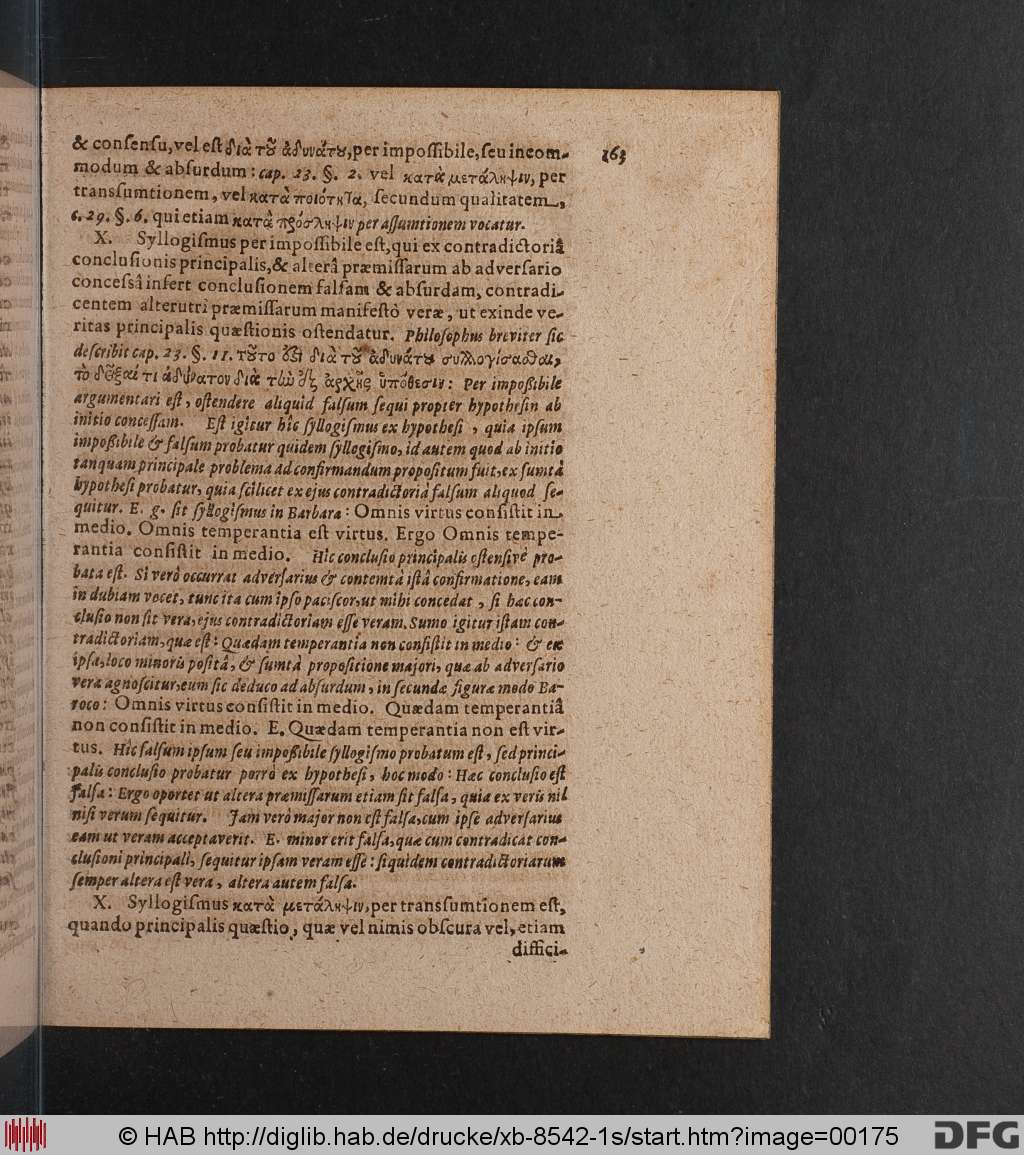 & conſenſu, vel eſt διὰ τοῦ ἀδυνάτου, per impoſſibile, ſeu incom-
163
modum & abſurdum: cap. 23. §. 2. vel κατὰ μετάληψιν, per
transſumtionem, vel κατὰ ποιότητα, ſecundum qualitatem,
c. 29. §. 6. qui etiam κατὰ πρόσληψιν per aſſumtionem vocatur.
X. Syllogiſmus per impoſſibile eſt, qui ex contradictoriâ
concluſionis principalis, & alterâ præmiſſarum ab adverſario
conceſsâ infert concluſionem falſam & abſurdam, contradi-
centem alterutri præmiſſarum manifeſtò veræ, ut exinde ve-
ritas principalis quæſtionis oſtendatur. Philoſophus breviter ſic
deſcribit cap. 23. §. 11. τοῦτο ἐστὶ διὰ τοῦ ἀδυνάτου συλλογίσασθαι,
τὸ δεῖξαί τι ἀδύνατον διὰ τὴν ἐξ ἀρχῆς ὑπόθεσιν: Per impoßibile
argumentari eſt, oſtendere aliquid falſum ſequi propter hypotheſin ab
initio conceſſam. Eſt igitur hîc ſyllogiſmus ex hypotheſi, quia ipſum
impoßibile & falſum probatur quidem ſyllogiſmo, id autem quod ab initio
tanquam principale problema ad confirmandum propoſitum fuit, ex ſumtâ
hypotheſi probatur, quia ſcilicet ex ejus contradictoriâ falſum aliquod ſe-
quitur. E. g. ſit ſyllogiſmus in Barbara: Omnis virtus conſiſtit in
medio. Omnis temperantia eſt virtus. Ergo Omnis tempe-
rantia conſiſtit in medio. Hîc concluſio principalis oſtenſivè pro-
bata eſt. Si verò occurrat adverſarius & contemtâ iſtâ confirmatione, eam
in dubiam vocet, tunc ita cum ipſo paciſcor, ut mihi concedat, ſi hæc con-
cluſio non ſit vera, ejus contradictoriam eſſe veram. Sumo igitur iſtam con-
tradictoriam, quæ eſt: Quædam temperantia non conſiſtit in medio: & ex
ipſa, loco minoris poſitâ, & ſumtâ propoſitione majori, quæ ab adverſario
vera agnoſcitur, eum ſic deduco ad abſurdum, in ſecundæ figuræ modo Ba-
roco: Omnis virtus conſiſtit in medio. Quædam temperantiâ
non conſiſtit in medio. E. Quædam temperantia non eſt vir-
tus. Hîc falſum ipſum ſeu impoßibile ſyllogiſmo probatum eſt, ſed princi-
palis concluſio probatur porrò ex hypotheſi, hoc modo: Hæc concluſio eſt
falſa: Ergo oportet ut altera præmiſſarum etiam ſit falſa, quia ex veris nil
niſi verum ſequitur. Jam verò major non eſt falſa, cum ipſe adverſarius
eam ut veram acceptaverit. E. minor erit falſa, quæ cum contradicat con-
cluſioni principali, ſequitur ipſam veram eſſe: ſiquidem contradictoriarum
ſemper altera eſt vera, altera autem falſa.
X. Syllogiſmus κατὰ μετάληψιν, per transſumtionem eſt,
quando principalis quæſtio, quæ vel nimis obſcura vel, etiam
diffici-
© HAB http://diglib.hab.de/drucke/xb-8542-1s/start.htm?image=00175
DFG